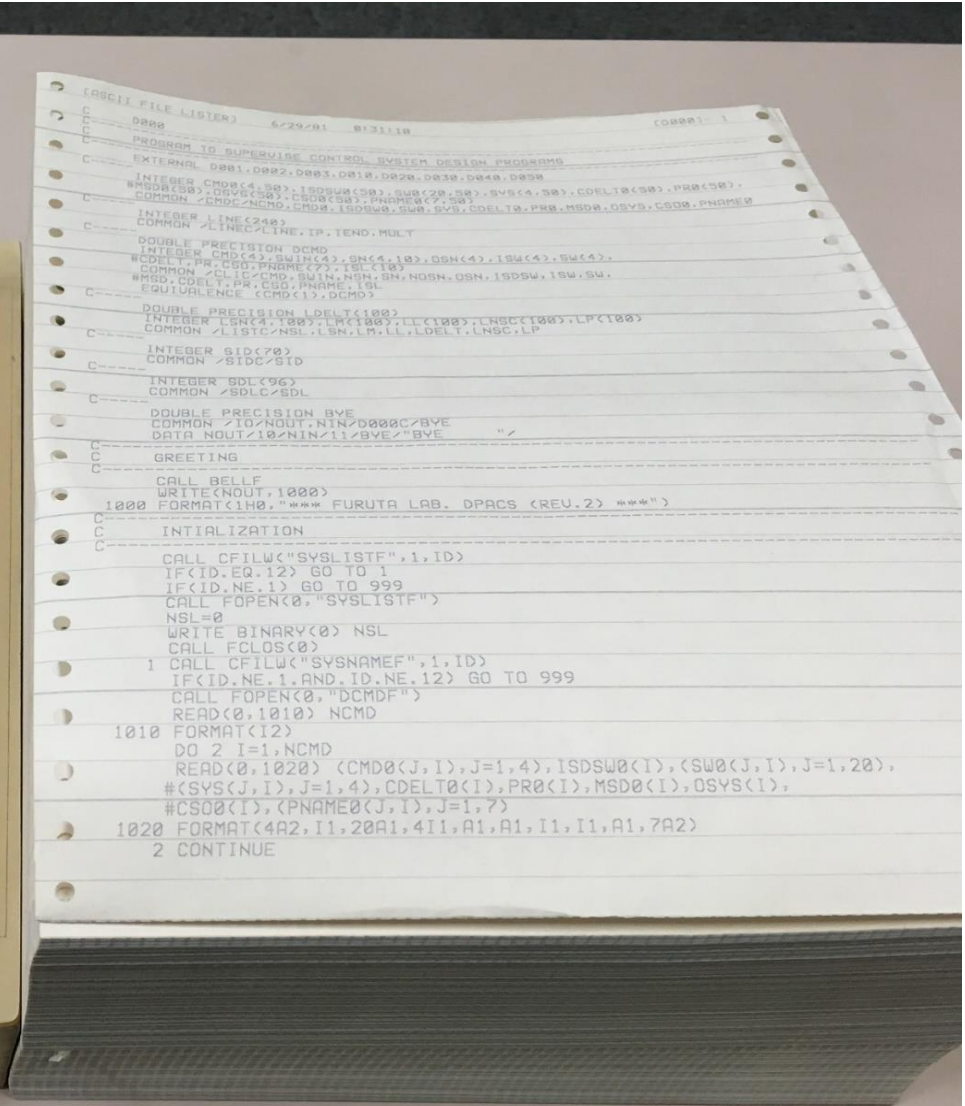 (ASCII FILE LISTER)
D000 6/29/81 8:31:10 (D000)- 1
C
C-----
C
C PROGRAM TO SUPERVISE CONTROL SYSTEM DESIGN PROGRAMS
C-----
EXTERNAL D001,D002,D003,D010,D020,D030,D040,D050
C-----
INTEGER CMD0(4,50),ISDSW0(50),SW0(20,50),SYS(4,50),CDELT0(50),PR0(50),
#MSD0(50),OSYS(50),CSO0(50),PNAME0(7,50)
COMMON /CMDC/NCMD,CMD0,ISDSW0,SW0,SYS,CDELT0,PR0,MSD0,OSYS,CSO0,PNAME0
C-----
INTEGER LINE(240)
COMMON /LINEC/LINE,IP,IEND,MULT
C-----
DOUBLE PRECISION DCMD
INTEGER CMD(4),SWIN(4),SN(4,10),OSN(4),ISW(4),SW(4),
#CDELT,PR,CSO,PNAME(7),ISL(10)
COMMON /CLIC/CMD,SWIN,NSN,SN,NOSN,OSN,ISDSW,ISW,SW,
#MSD,CDELT,PR,CSO,PNAME,ISL
EQUIVALENCE (CMD(1),DCMD)
C-----
DOUBLE PRECISION LDELT(100)
INTEGER LSN(4,100),LM(100),LL(100),LNSC(100),LP(100)
COMMON /LISTC/NSL,LSN,LM,LL,LDELT,LNSC,LP
C-----
INTEGER SID(70)
COMMON /SIDC/SID
C-----
INTEGER SDL(96)
COMMON /SDLC/SDL
C-----
DOUBLE PRECISION BYE
COMMON /IO/NOUT,NIN/D000C/BYE
DATA NOUT/10/NIN/11/BYE/"BYE     "/
C-----------------------------------------------------------------
C GREETING
C-----------------------------------------------------------------
CALL BELLF
WRITE(NOUT,1000)
1000 FORMAT(1H0,"*** FURUTA LAB. DPACS (REV.2) ***")
C-----------------------------------------------------------------
C INTIALIZATION
C-----------------------------------------------------------------
CALL CFILW("SYSLISTF",1,ID)
IF(ID.EQ.12) GO TO 1
IF(ID.NE.1) GO TO 999
CALL FOPEN(0,"SYSLISTF")
NSL=0
WRITE BINARY(0) NSL
CALL FCLOS(0)
1 CALL CFILW("SYSNAMEF",1,ID)
IF(ID.NE.1.AND.ID.NE.12) GO TO 999
CALL FOPEN(0,"DCMDF")
READ(0,1010) NCMD
1010 FORMAT(I2)
DO 2 I=1,NCMD
READ(0,1020) (CMD0(J,I),J=1,4),ISDSW0(I),(SW0(J,I),J=1,20),
#(SYS(J,I),J=1,4),CDELT0(I),PR0(I),MSD0(I),OSYS(I),
#CSO0(I),(PNAME0(J,I),J=1,7)
1020 FORMAT(4A2,I1,20A1,4I1,A1,A1,I1,I1,A1,7A2)
2 CONTINUE